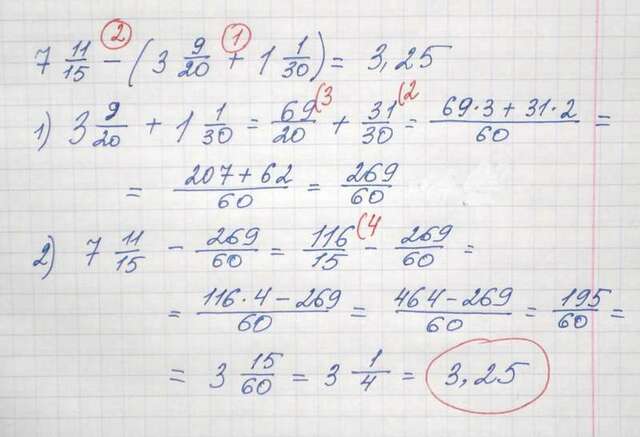 ② ①
7 11/15 - (3 9/20 + 1 1/30) = 3,25
1) 3 9/20 + 1 1/30 = 69/20 (3 + 31/30 (2 = 69·3 + 31·2/60 =
= 207 + 62/60 = 269/60
2) 7 11/15 - 269/60 = 116/15 (4 - 269/60 =
= 116·4 - 269/60 = 464 - 269/60 = 195/60 =
= 3 15/60 = 3 1/4 = 3,25